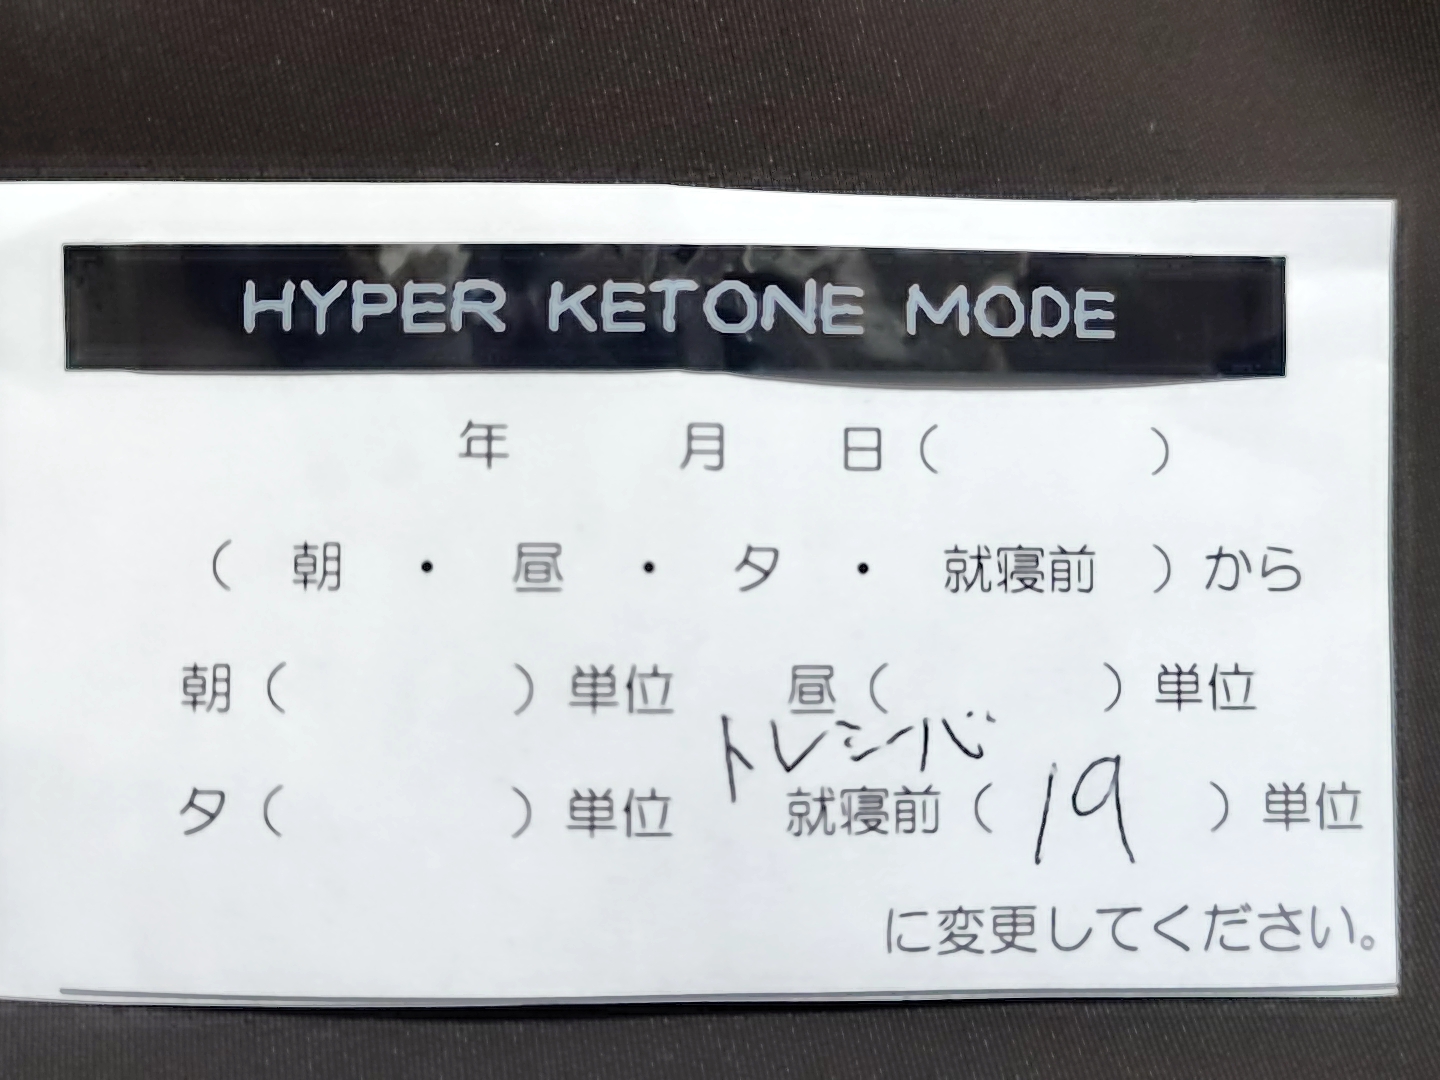 HYPER KETONE MODE
年 月 日( )
( 朝 ・ 昼 ・ 夕 ・ 就寝前 )から
朝( )単位 昼( )単位
トレシーバ
夕( )単位 就寝前( 19 )単位
に変更してください。